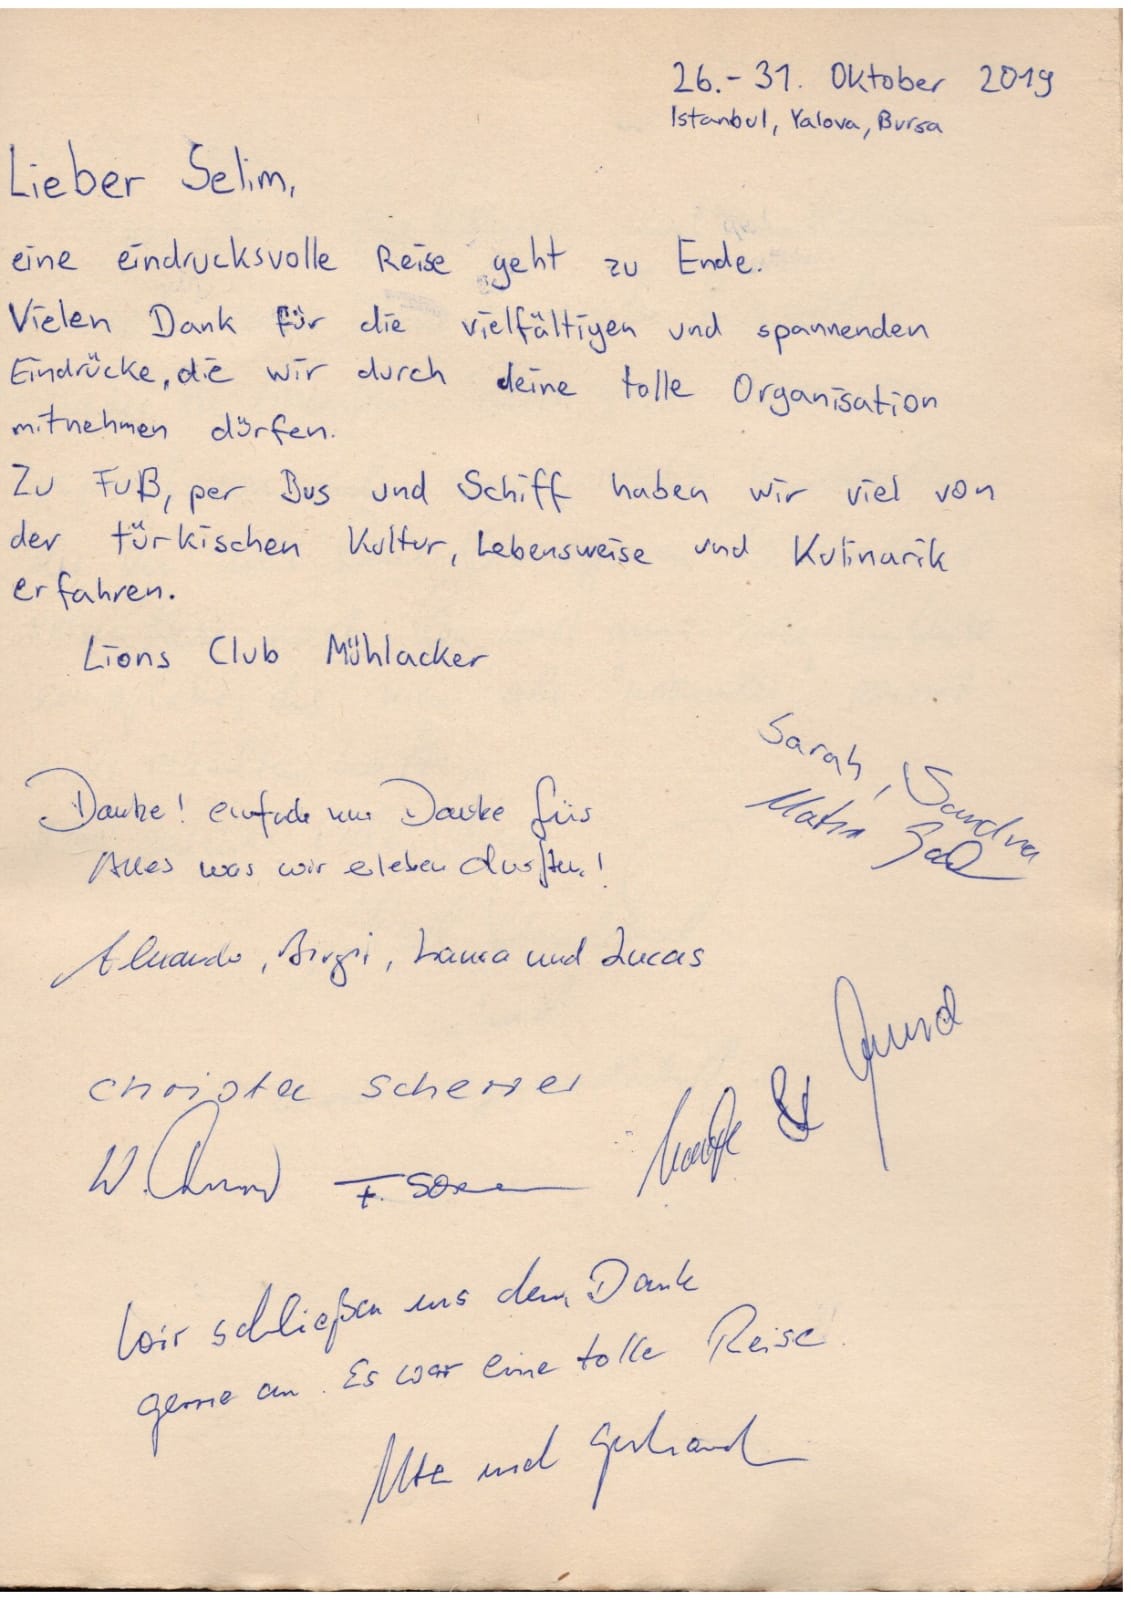 26.-31. Oktober 2019
Istanbul, Yalova, Bursa
Lieber Selim,
eine eindrucksvolle Reise geht zu Ende.
Vielen Dank für die vielfältigen und spannenden
Eindrücke, die wir durch deine tolle Organisation
mitnehmen dürfen.
Zu Fuß, per Bus und Schiff haben wir viel von
der türkischen Kultur, Lebensweise und Kulinarik
erfahren.
Lions Club Mühlacker
Sarah, Sandra
Danke! einfach nur Danke fürs
Alles was wir erleben durften!
Laura und Lucas
Christa Scherrer
W.
F.
&
Wir schließen uns dem Dank
gerne an. Es war eine tolle Reise.
Ute und Gerhard